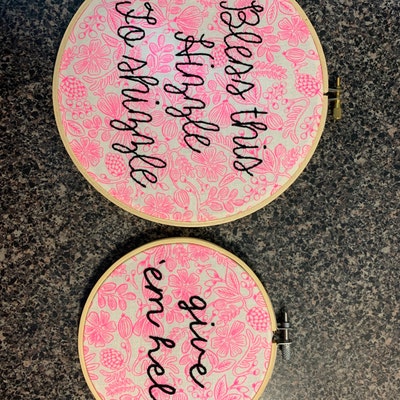 Bless this
Hizzle
Fo shizzle
give
'em hel